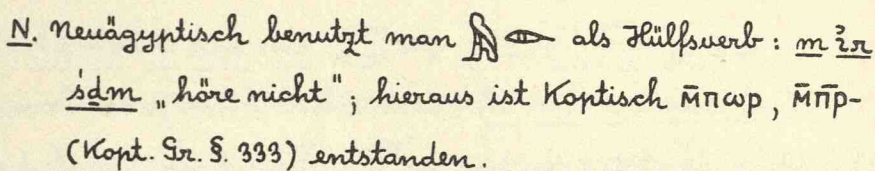 N. Neuägyptisch benutzt man 𓅓𓂋 als Hülfsverb: m ỉr
śdm „höre nicht"; hieraus ist Koptisch ⲙ̄ⲡⲱⲣ, ⲙ̄ⲡ̄ⲣ-
(Kopt. Gr. §. 333) entstanden.